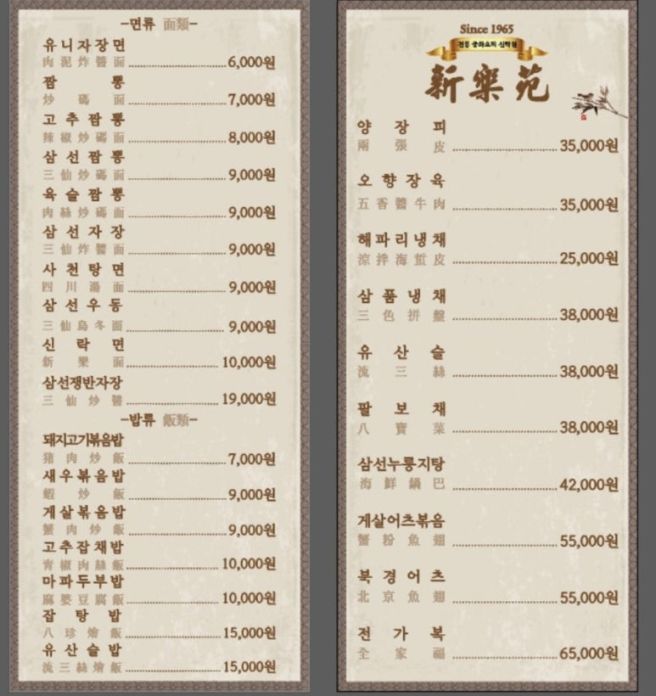 -면류 面類-
유니자장면
肉泥炸醬面 6,000원
짬뽕
炒碼面 7,000원
고추짬뽕
辣椒炒碼面 8,000원
삼선짬뽕
三仙炒碼面 9,000원
육슬짬뽕
肉絲炒碼面 9,000원
삼선자장
三仙炸醬面 9,000원
사천탕면
四川湯面 9,000원
삼선우동
三仙烏冬面 9,000원
신락면
新樂面 10,000원
삼선쟁반자장
三仙炒醬 19,000원
-밥류 飯類-
돼지고기볶음밥
猪肉炒飯 7,000원
새우볶음밥
蝦炒飯 9,000원
게살볶음밥
蟹肉炒飯 9,000원
고추잡채밥
靑椒肉絲飯 10,000원
마파두부밥
麻婆豆腐飯 10,000원
잡탕밥
八珍燴飯 15,000원
유산슬밥
流三絲燴飯 15,000원
Since 1965
전통 중화요리 신락원
新樂苑
양장피
兩張皮 35,000원
오향장육
五香醬牛肉 35,000원
해파리냉채
凉拌海蜇皮 25,000원
삼품냉채
三色拼盤 38,000원
유산슬
流三絲 38,000원
팔보채
八寶菜 38,000원
삼선누룽지탕
海鮮鍋巴 42,000원
게살어츠볶음
蟹粉魚翅 55,000원
북경어츠
北京魚翅 55,000원
전가복
全家福 65,000원